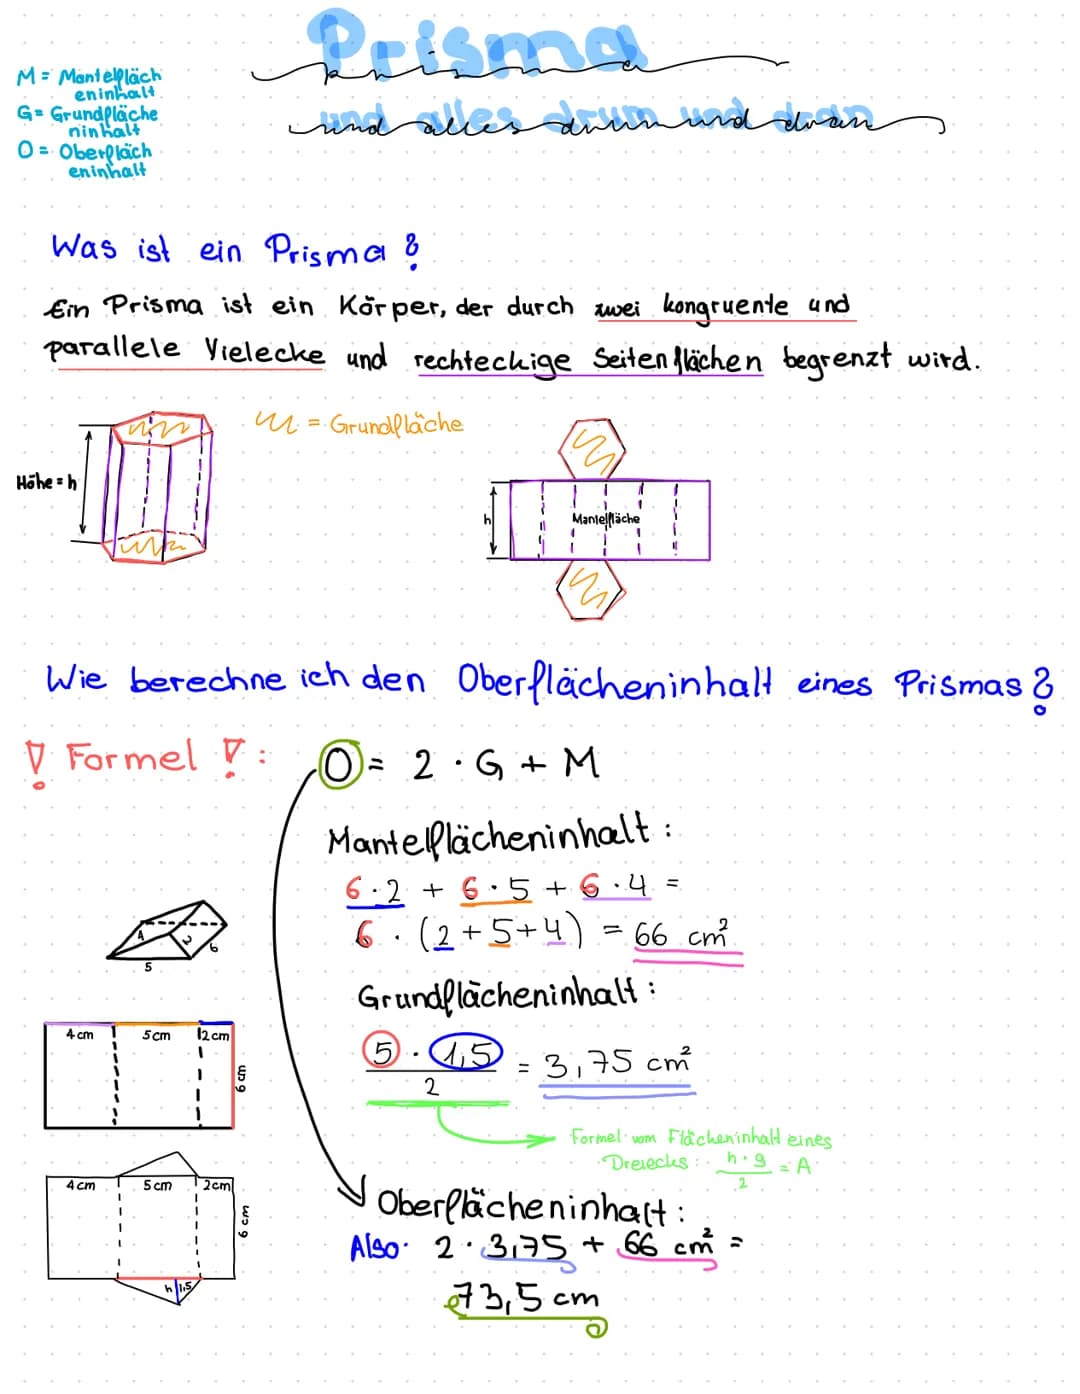 Prisma
prisma
und alles drum und dran
M = Mantelfläch
eninhalt
G = Grundfläche
ninhalt
O = Oberfläch
eninhalt
Was ist ein Prisma?
Ein Prisma ist ein Körper, der durch zwei kongruente und
parallele Vielecke und rechteckige Seitenflächen begrenzt wird.
= Grundfläche
Höhe = h
h
Mantelfläche
Wie berechne ich den Oberflächeninhalt eines Prismas?
! Formel ! :
O = 2 · G + M
Mantelflächeninhalt :
6 · 2 + 6 · 5 + 6 · 4 =
6 · (2 + 5 + 4) = 66 cm²
4 2 6
5
Grundflächeninhalt :
5 · 1,5
2
= 3,75 cm²
4 cm 5 cm 2 cm
6 cm
Formel vom Flächeninhalt eines
Dreiecks : h · g
2
= A
4 cm 5 cm 2 cm
6 cm
h 1,5
Oberflächeninhalt :
Also: 2 · 3,75 + 66 cm² =
73,5 cm